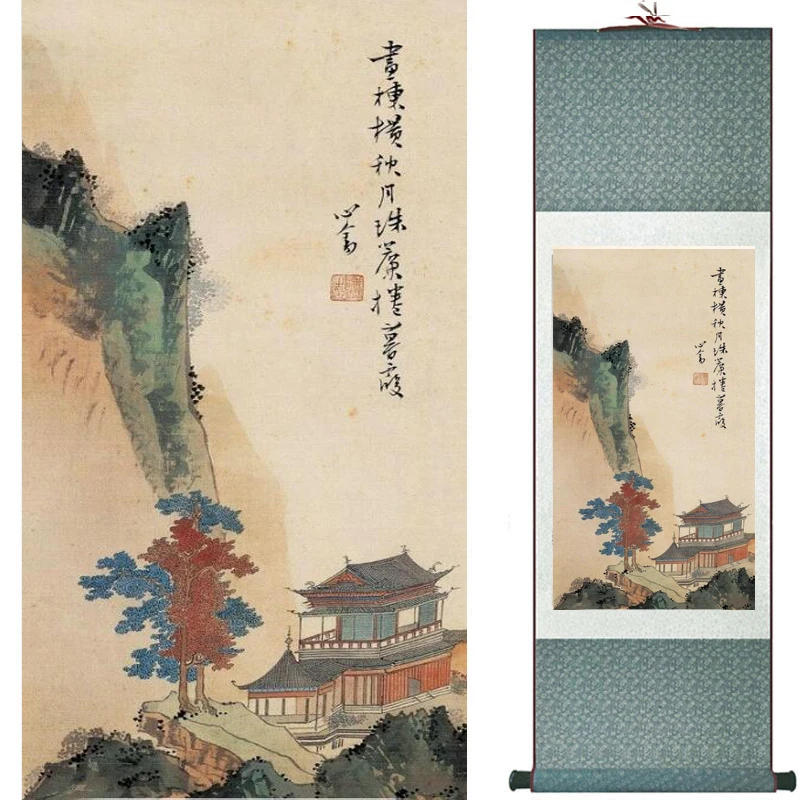 畫棟橫秋月珠簾捲暮霞
心畬
畫棟橫秋月珠簾捲暮霞
心畬